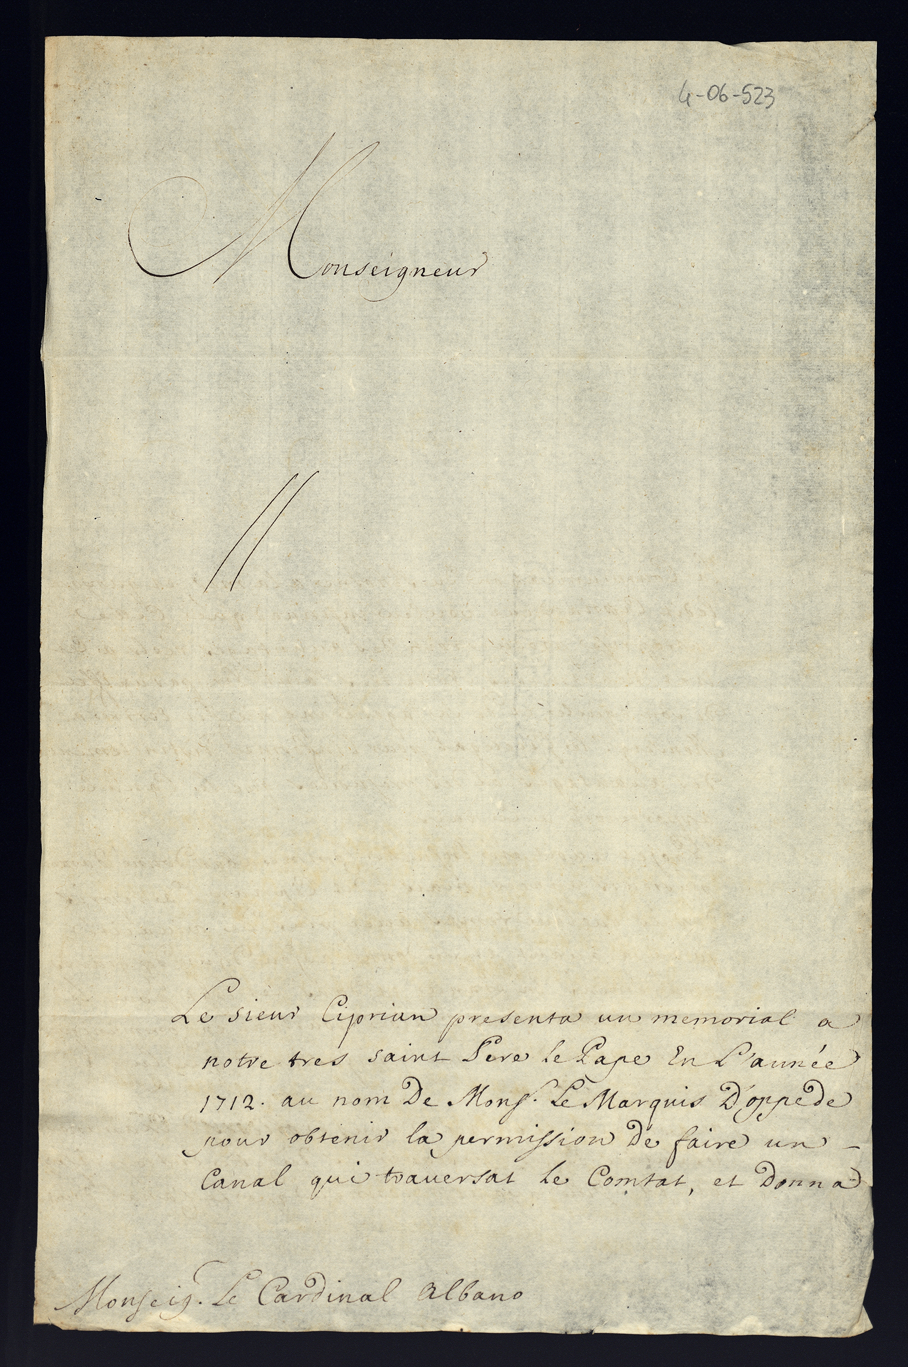 4-06-523
Monseigneur
//
Le sieur Ciprian presenta un memorial a
notre tres saint Pere le Pape En L'année
1712. au nom De Monsr. Le Marquis D'oppede
pour obtenir la permission De faire un -
Canal qui traversat le Comtat, et Donna
Monseigr. Le Cardinal Albano